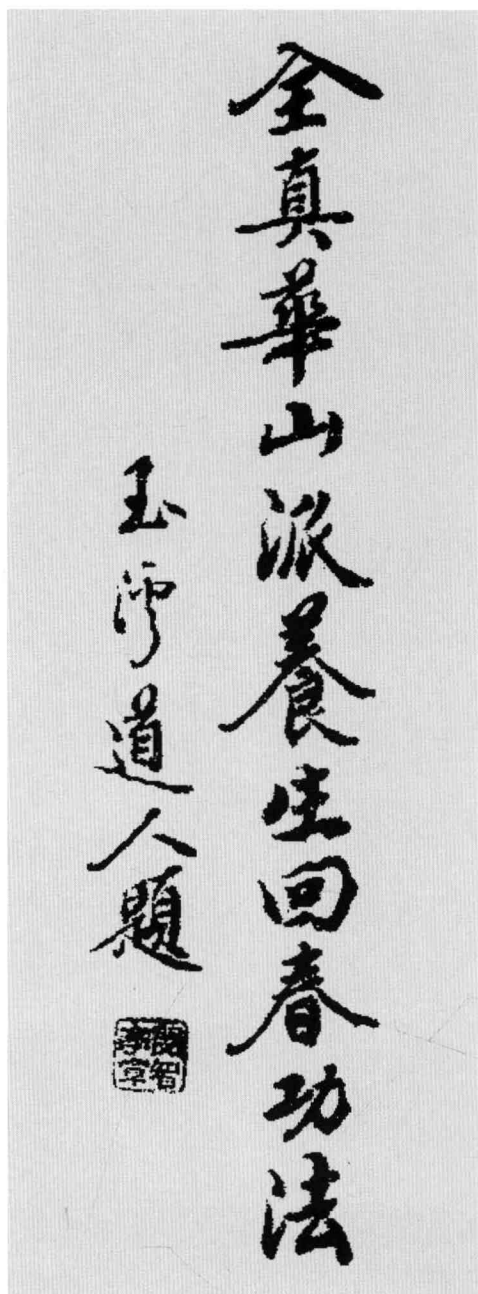 全真華山派養生回春功法
玉溪道人題
閔智亭章